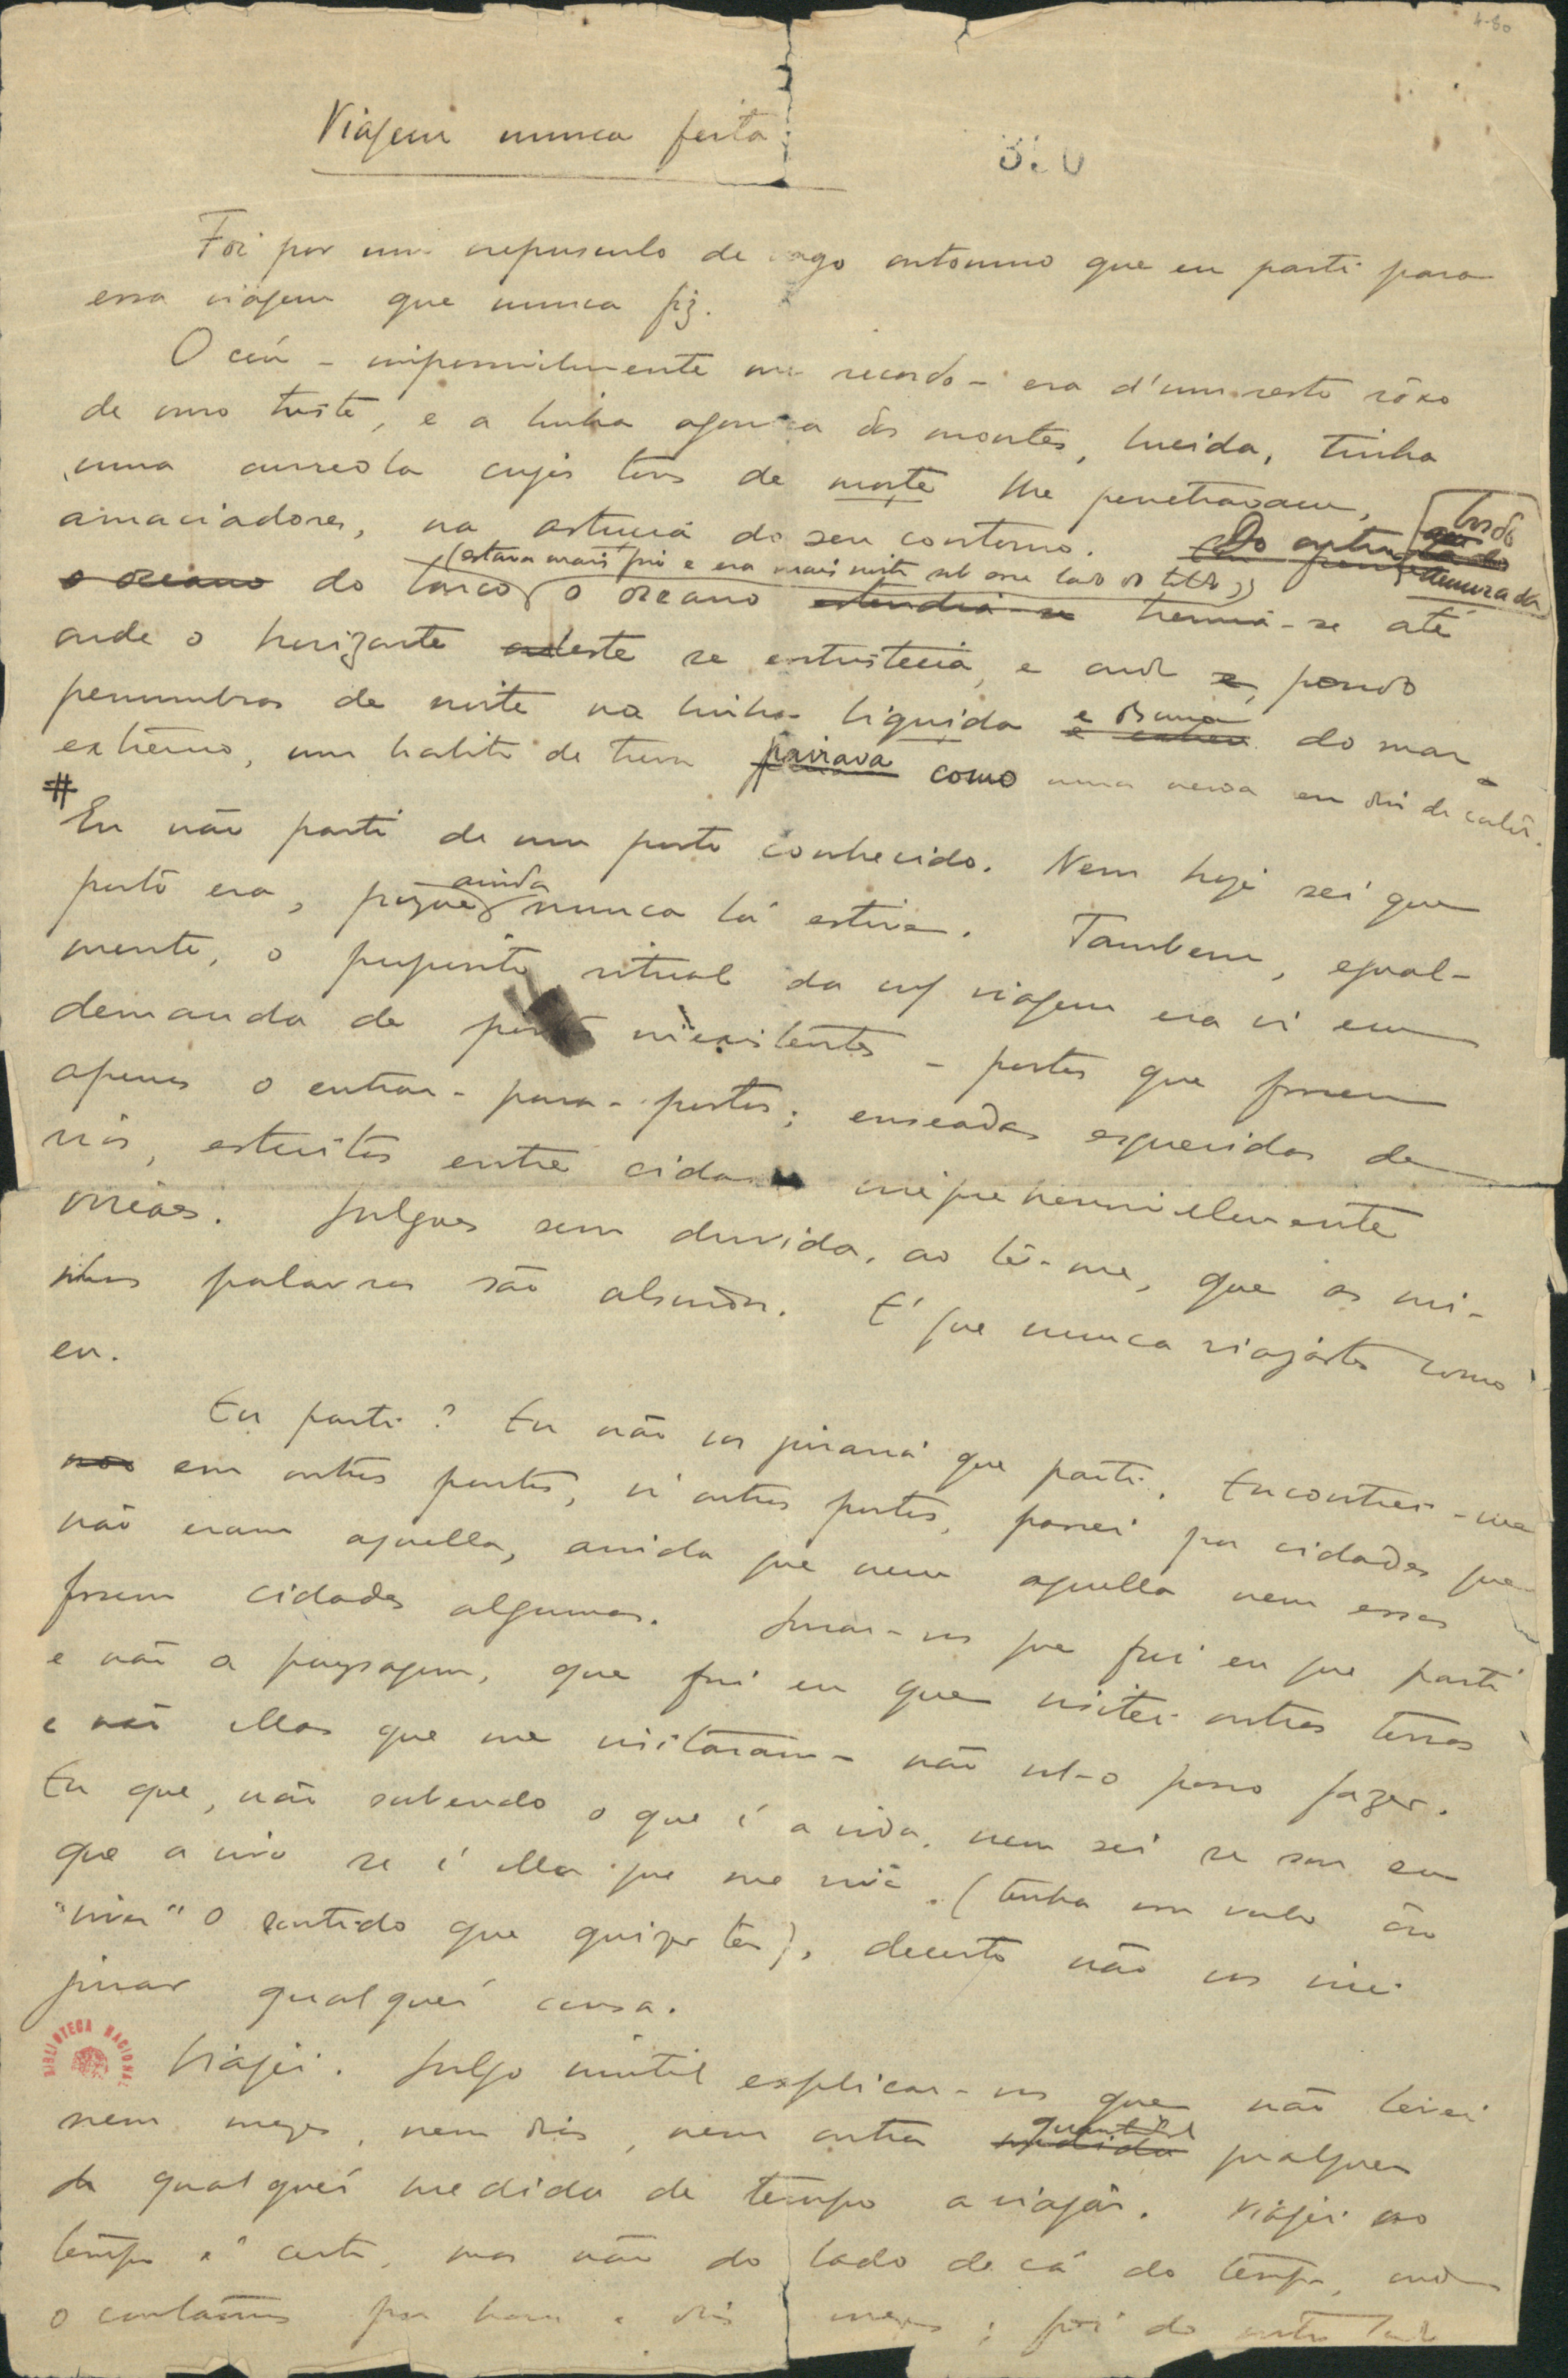 4-60
Viagem nunca feita.
Foi por um crepusculo de vago outomno que eu parti para
essa viagem que nunca fiz.
O céu - impossivelmente me recordo - era d'um resto rôxo
de ouro triste, e a linha agonica dos montes, lucida, tinha
uma aureola cujos tons de morte lhe penetravam,
amaciadores, na astucia do seu contorno. Do outro bordo
amurada
(estava mais frio e era mais noite sob esse lado do toldo)
o oceano do barco o oceano estendia-se tremia-se até
onde o horizonte leste se entristecia, e onde e, pondo
e escura
penumbras de noite na linha liquida do mar
extremo, um halito de treva pairava como uma nevoa em dia de calor.
# Eu não parti de um porto conhecido. Nem hoje sei que
ainda
porto era, porque nunca lá estive. Tambem, egual-
mente, o proposito ritual da viagem era ir em
demanda de portos inexistentes - portos que fossem
apenas o entrar-para-portos; enseadas esquecidas de
rios, estreitos entre cidades irreprehensivelmente
irreaes. Julgaes sem duvida, ao lêr-me, que as mi-
nhas palavras são absurdas. É que nunca viajastes como
eu.
Eu parti? Eu não vos juraria que parti. Encontrei-me
em outras partes, vi outros portos, passei por cidades que
não eram aquella, ainda que nem aquella nem essas
fossem cidades algumas. Jurar-vos que fui eu que parti
e não a paysagem, que fui eu que visitei outras terras
e não ellas que me visitaram - não vol-o posso fazer.
Eu que, não sabendo o que é a vida, nem sei se sou eu
que a vivo se é ella que me vive. (tenha em verbo ôco
"viver" o sentido que quizer ter), decerto não vos irei
jurar qualquer cousa.
BIBLIOTECA NACIONAL
Viajei. Julgo inutil explicar-vos que não levei
quantidade
nem mezes, nem dias, nem outra medida qualquer
de qualquer medida de tempo a viajar. Viajei no
tempo é certo, mas não do lado de cá do tempo, onde
o contamos por horas e dias mezes; foi do outro lado